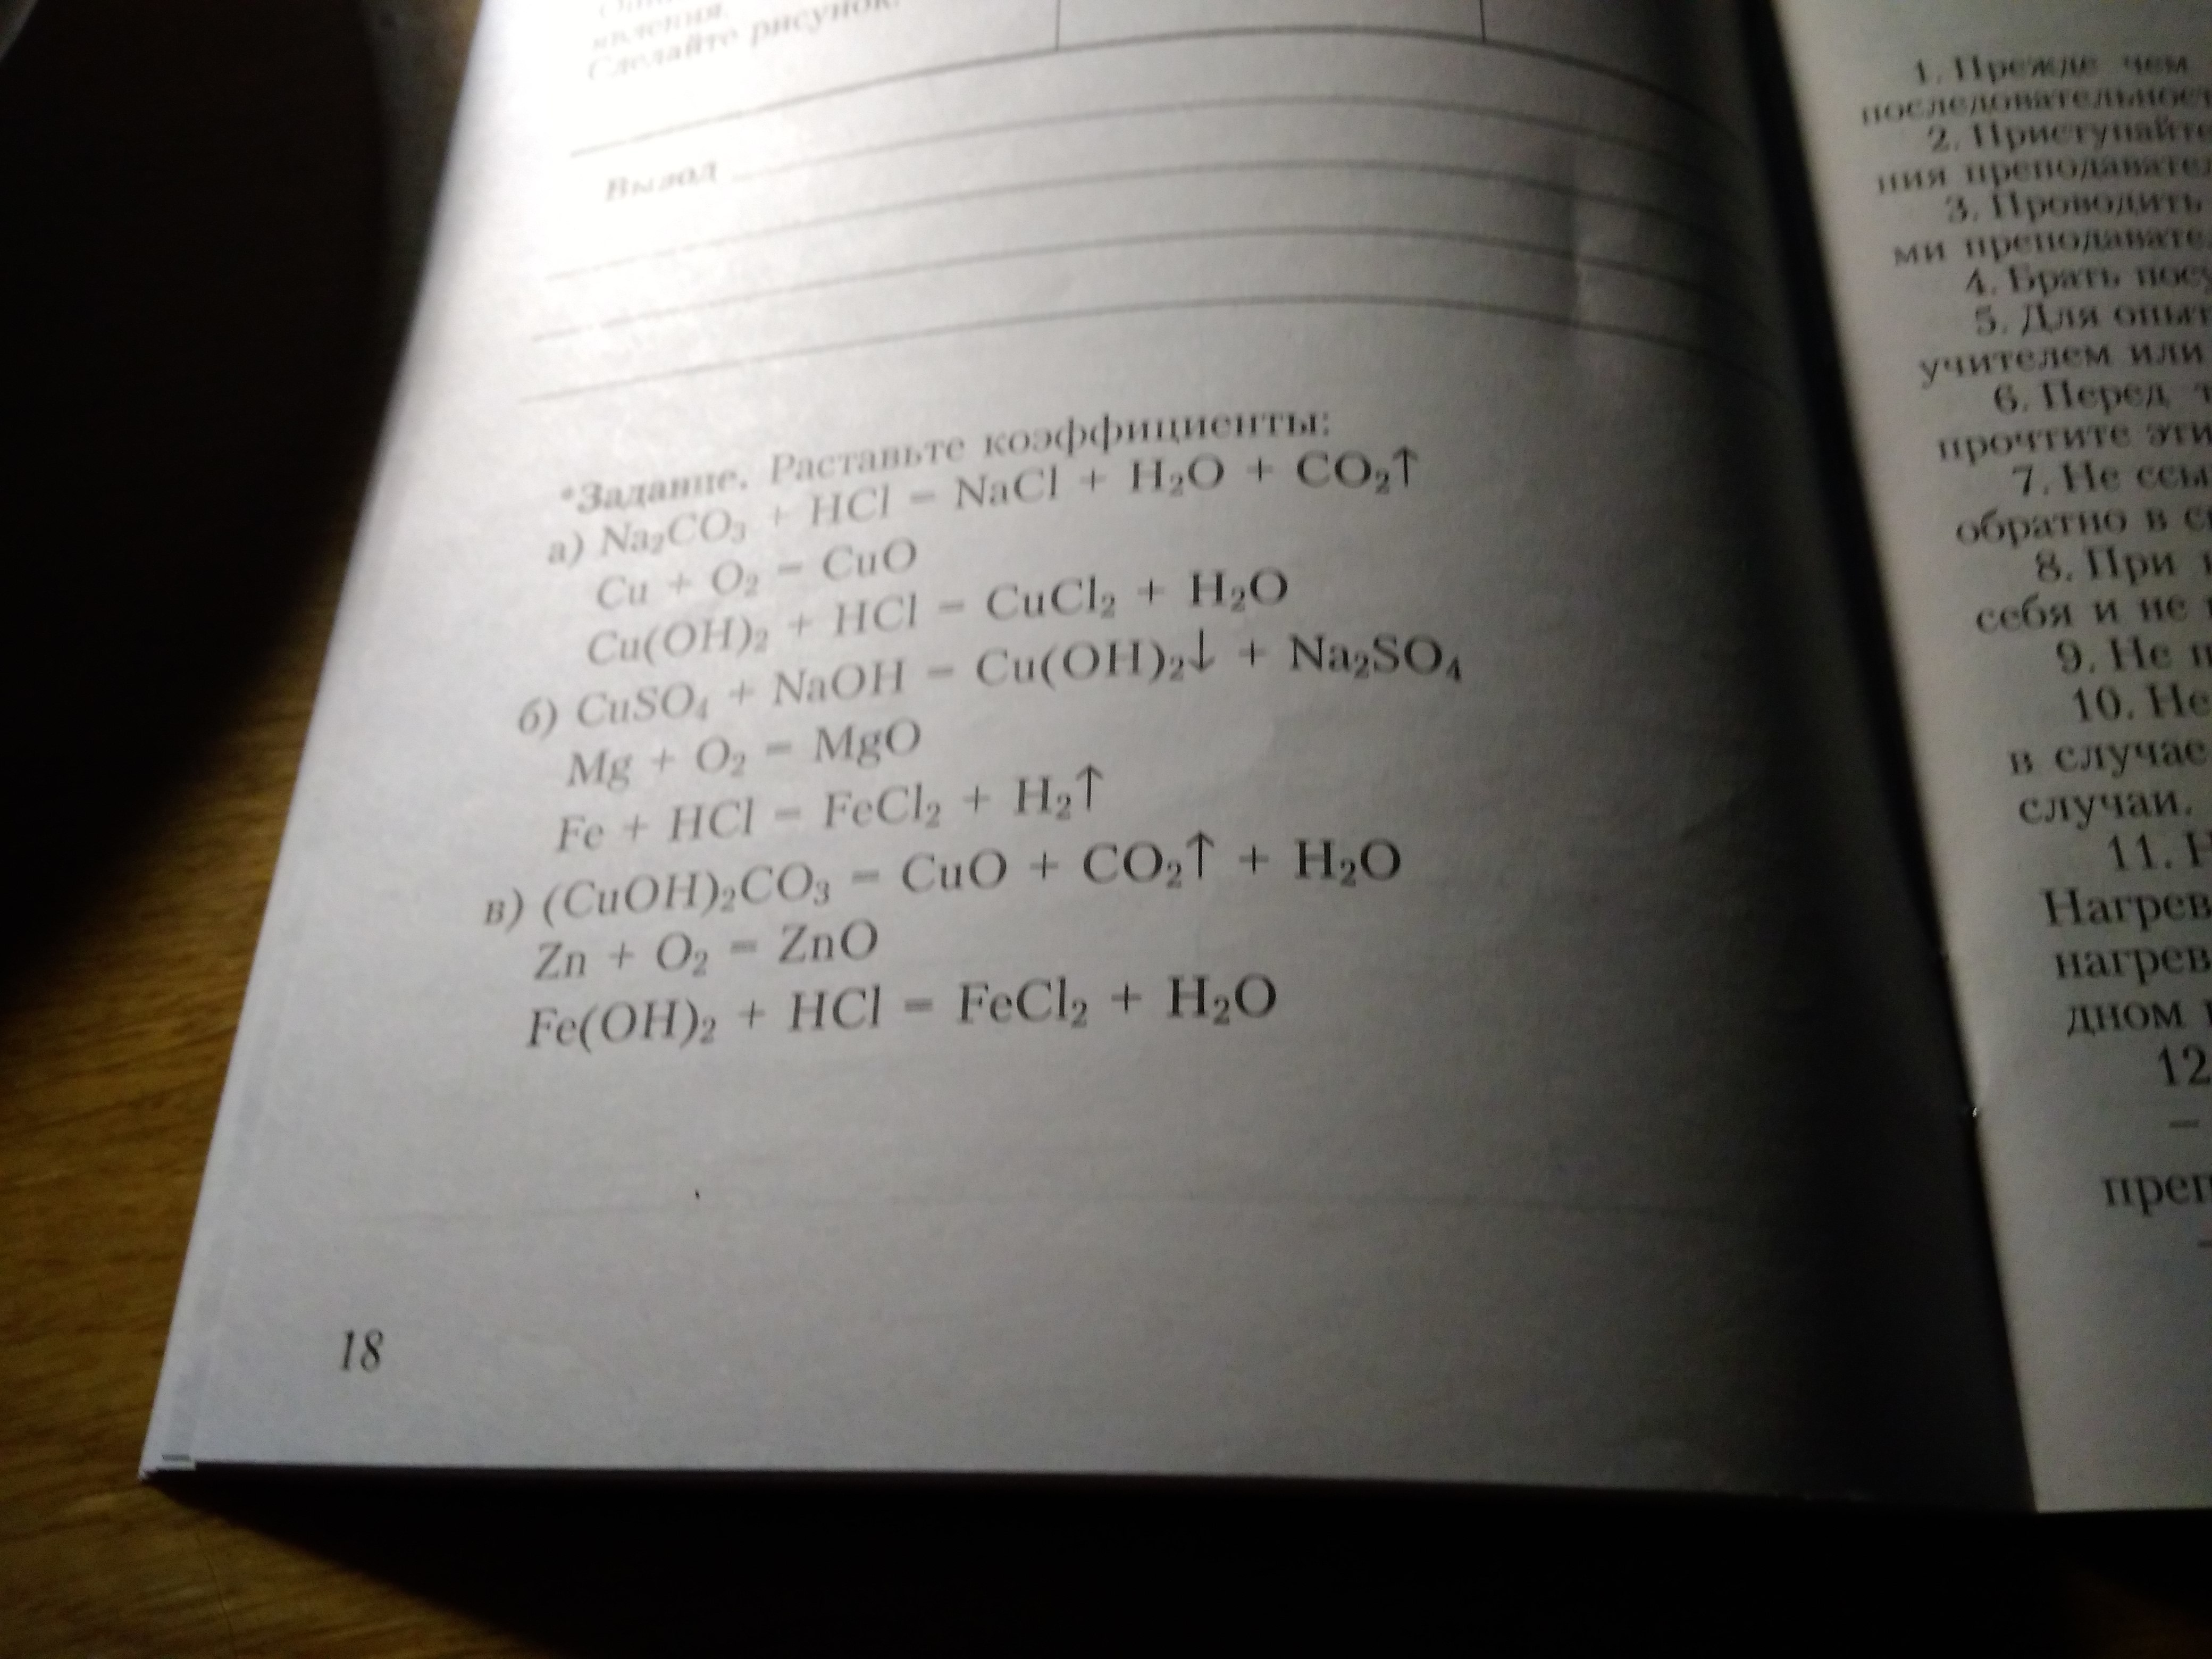 явления.
Сделайте рисунок.
Вывод
*Задание. Раставьте коэффициенты:
а) Na₂CO₃ + HCl = NaCl + H₂O + CO₂↑
Cu + O₂ = CuO
Cu(OH)₂ + HCl = CuCl₂ + H₂O
б) CuSO₄ + NaOH = Cu(OH)₂↓ + Na₂SO₄
Mg + O₂ = MgO
Fe + HCl = FeCl₂ + H₂↑
в) (CuOH)₂CO₃ = CuO + CO₂↑ + H₂O
Zn + O₂ = ZnO
Fe(OH)₂ + HCl = FeCl₂ + H₂O
18
1. Прежде чем
последовательност
2. Приступайте
ния преподавател
3. Проводить
ми преподавате
4. Брать посу
5. Для опыт
учителем или
6. Перед т
прочтите эти
7. Не ссы
обратно в с
8. При
себя и не
9. Не п
10. Не
в случае
случаи.
11. Н
Нагрев
нагрев
дном
12
–
преп
–